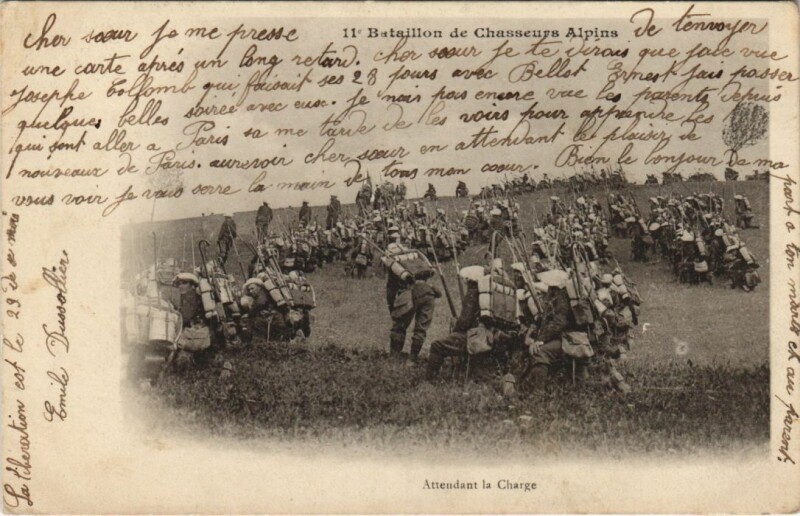 11e Bataillon de Chasseurs Alpins
cher sœur Je me presse De tenvoyer
une carte aprés un long retard. cher sœur je te dirais que jaie vue
Josephe Collomb qui faisait ses 28 jours avec Bellot Ernest jais passer
quelques belles soirée avec eux. Je nais pas encure vue les parents depuis
qui sont aller a Paris sa me tarde de les voirs pour apprendre les
nouveaux de Paris. aurevoir cher sœur en attendant le plaisir de
vous voir je vous serre la main de tous mon cœur. Bien le bonjour da ma
part a ton marie et au parent.
La liberation est le 23 de ce mois
Emile Dussollier.
Attendant la Charge